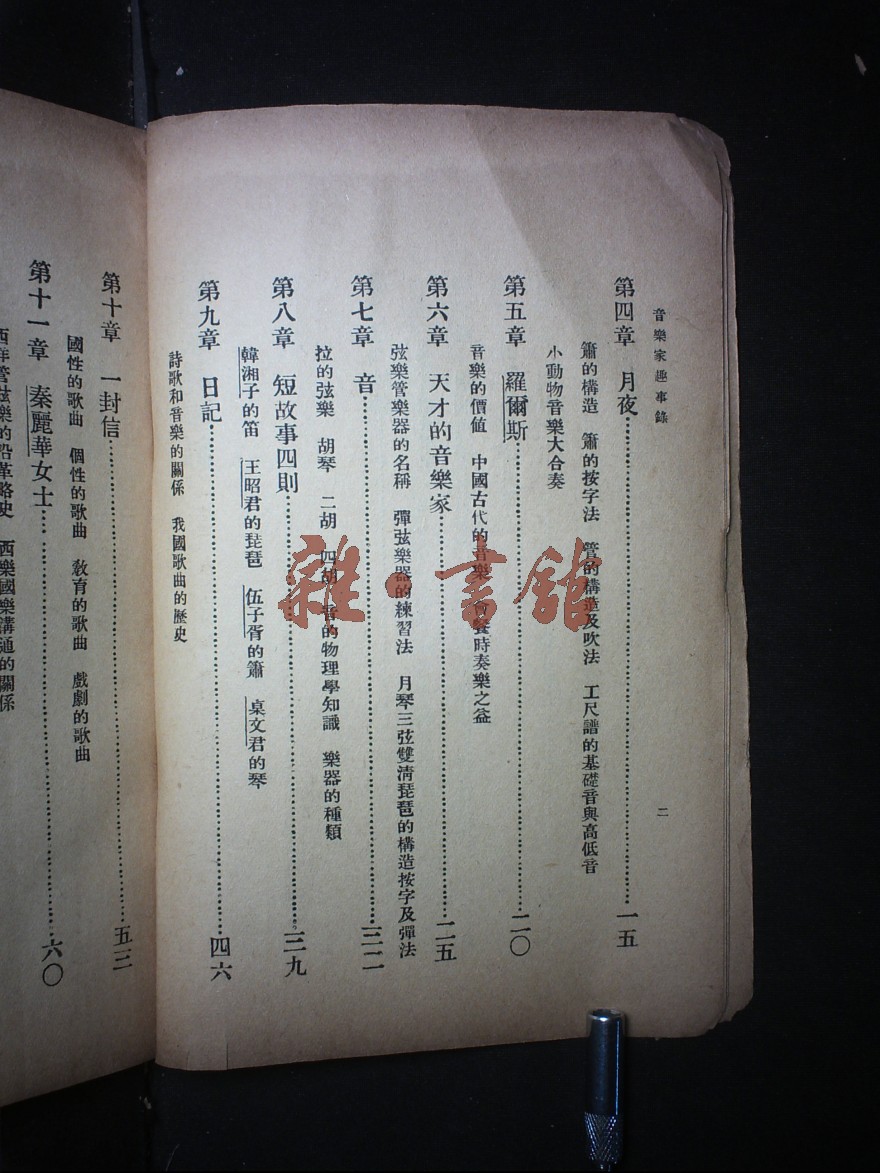 音樂家趣事錄
二
第四章 月夜……一五
簫的構造 簫的按字法 管的構造及吹法 工尺譜的基礎音與高低音
小動物音樂大合奏
第五章 羅爾斯……二〇
音樂的價値 中國古代的音樂 會餐時奏樂之益
第六章 天才的音樂家……二五
弦樂管樂器的名稱 彈弦樂器的練習法 月琴三弦雙清琵琶的構造按字及彈法
第七章 音……三二
拉的弦樂 胡琴 二胡 四胡 音的物理學知識 樂器的種類
第八章 短故事四則……三九
韓湘子的笛 王昭君的琵琶 伍子胥的簫 桌文君的琴
第九章 日記……四六
詩歌和音樂的關係 我國歌曲的歷史
第十章 一封信……五三
國性的歌曲 個性的歌曲 敎育的歌曲 戲劇的歌曲
第十一章 秦麗華女士……六〇
西洋管弦樂的沿革略史 西樂國樂溝通的關係
雜·書館